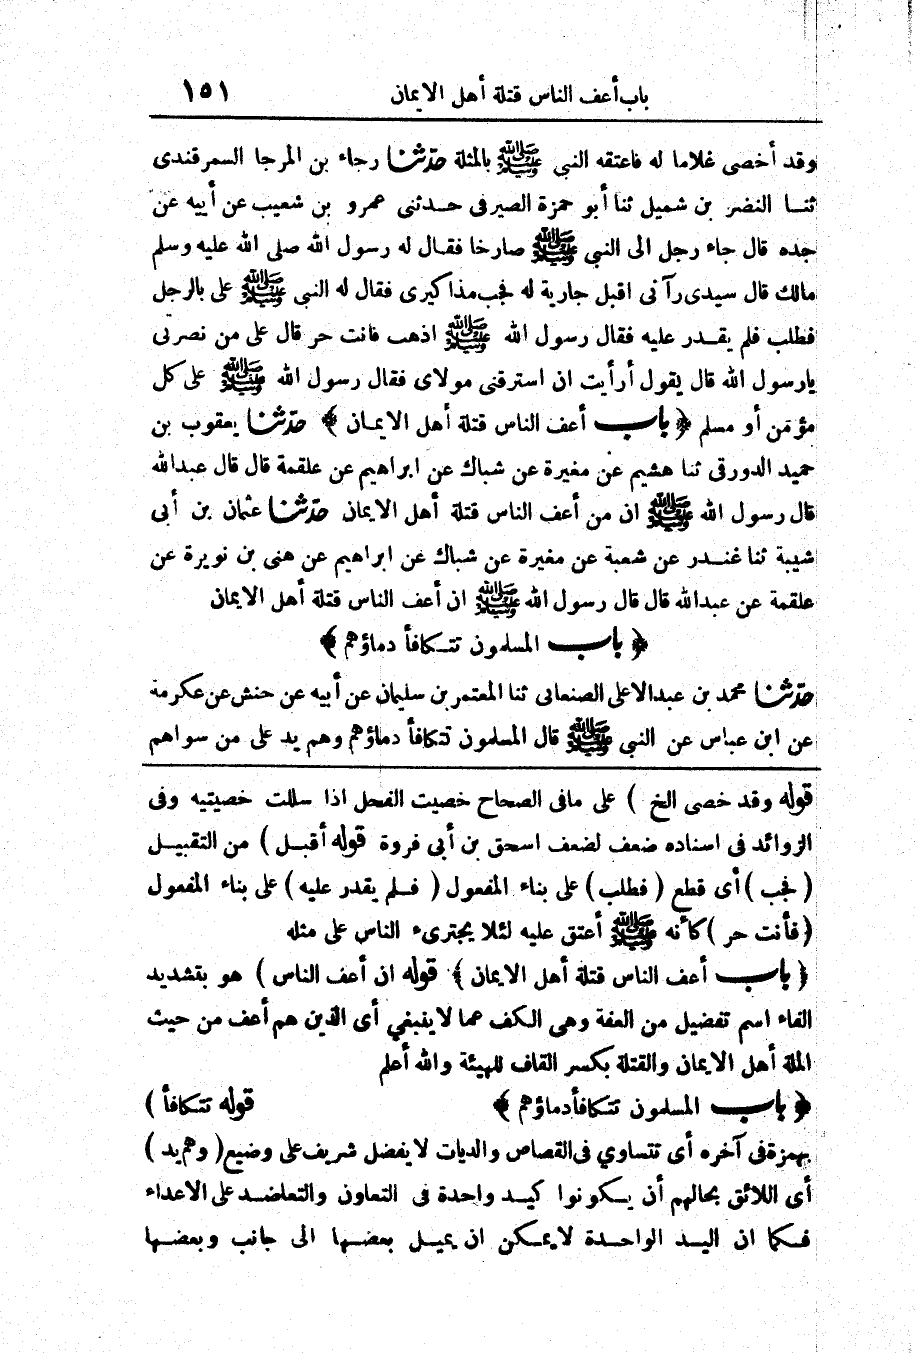 باب أعف الناس قتلة أهل الايمان ١٥١
وقد أخصى غلاما له فاعتقه النبي ﷺ بالمثلة حدثنا رجاء بن المرجا السمرقندى
ثنا النضر بن شميل ثنا أبو حمزة الصيرفى حدثنى عمرو بن شعيب عن أبيه عن
جده قال جاء رجل الى النبي ﷺ صارخا فقال له رسول الله صلى الله عليه وسلم
مالك قال سيدى رآنى اقبل جارية له فجب مذاكيرى فقال له النبي ﷺ على بالرجل
فطلب فلم يقدر عليه فقال رسول الله ﷺ اذهب فانت حر قال على من نصرتى
يارسول الله قال يقول أرأيت ان استرقنى مولاى فقال رسول الله ﷺ على كل
مؤمن أو مسلم ﴿ باب أعف الناس قتلة أهل الايمان ﴾ حدثنا يعقوب بن
حميد الدورقى ثنا هشيم عن مغيرة عن شباك عن ابراهيم عن علقمة قال قال عبدالله
قال رسول الله ﷺ ان من أعف الناس قتلة أهل الايمان حدثنا عثمان بن أبى
شيبة ثنا غندر عن شعبة عن مغيرة عن شباك عن ابراهيم عن هنى بن نويرة عن
علقمة عن عبدالله قال قال رسول الله ﷺ ان أعف الناس قتلة أهل الايمان
﴿ باب المسلمون تتكافأ دماؤهم ﴾
حدثنا محمد بن عبدالاعلى الصنعانى ثنا المعتمر بن سليمان عن أبيه عن حنش عن عكرمة
عن ابن عباس عن النبي ﷺ قال المسلمون تتكافأ دماؤهم وهم يد على من سواهم
قوله وقد خصى الخ ) على مافى الصحاح خصيت الفحل اذا سللت خصيتيه وفى
الزوائد فى اسناده ضعف لضعف اسحق بن أبى فروة قوله أقبل ) من التقبيل
( فجب ) أى قطع ( فطلب ) على بناء المفعول ( فلم يقدر عليه ) على بناء المفعول
( فأنت حر ) كأنه ﷺ أعتق عليه لئلا يجترىء الناس على مثله
﴿ باب أعف الناس قتلة أهل الايمان ﴾ قوله ان أعف الناس ) هو بتشديد
الفاء اسم تفضيل من العفة وهى الكف عما لاينبغي أى الذين هم أعف من حيث
الملة أهل الايمان والقتلة بكسر القاف للهيئة والله أعلم
﴿ باب المسلمون تتكافأ دماؤهم ﴾ قوله تتكافأ )
بهمزة فى آخره أى تتساوي فى القصاص والديات لا يفضل شريف على وضيع ( وهم يد )
أى اللائق بحالهم أن يكونوا كيد واحدة فى التعاون والتعاضد على الاعداء
فكما ان اليد الواحدة لايمكن ان يميل بعضها الى جانب وبعضها